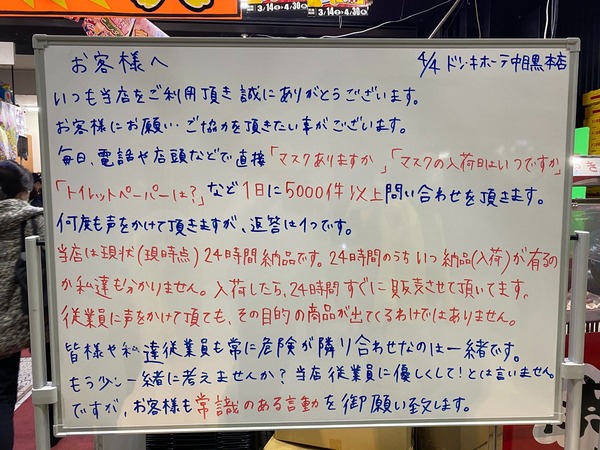 3/14 4/30
3/14 4/30
お客様へ
4/4 ドン・キホーテ中目黒本店
いつも当店をご利用頂き誠にありがとうございます。
お客様にお願い・ご協力を頂きたい事がございます。
毎日、電話や店頭などで直接「マスクありますか」「マスクの入荷日はいつですか」
「トイレットペーパーは?」など1日に5000件以上問い合わせを頂ます。
何度も声をかけて頂きますが、返答は1つです。
当店は現状(現時点)24時間納品です。24時間のうちいつ納品(入荷)が有るの
か私達も分かりません。入荷したら、24時間すぐに販売させて頂いてます。
従業員に声をかけて頂ても、その目的の商品が出てくるわけではありません。
皆様や私達従業員も常に危険が隣り合わせなのは一緒です。
もう少し一緒に考えませんか?当店従業員に優しくして!とは言いません。
ですが、お客様も常識のある言動を御願い致します。